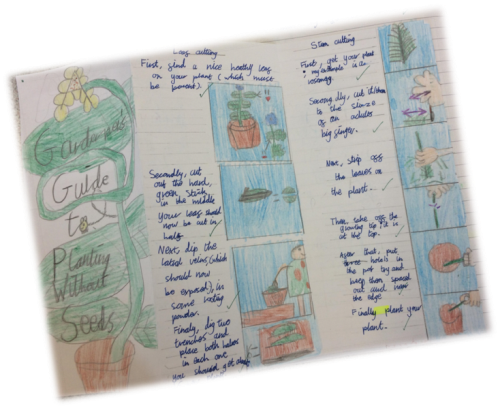 Gardener's
Guide
to
Planting
Without
Seeds
Leaf cutting
First, find a nice healthy leaf
on your plant (which must
be
Secondly, cut
out the hard,
green, stalk
in the middle
Your leaf should
now be cut in
half.
Next, dip the
veins, (which
should now
be exposed), in
some rooting
powder.
Finally, dig two
trenches and
place both halves
in each one
You should get about
Stem cutting
First, get your plant
my example is a
rosemary.
Secondly, cut it down
to the size
of an adults
big finger.
Next, strip off
the leaves on
the plant.
Then take off the
growing tip, it is
at the top.
After that, put
three holes in
the pot by and
keep them spaced
out and near
the edge
Finally plant your
plant.